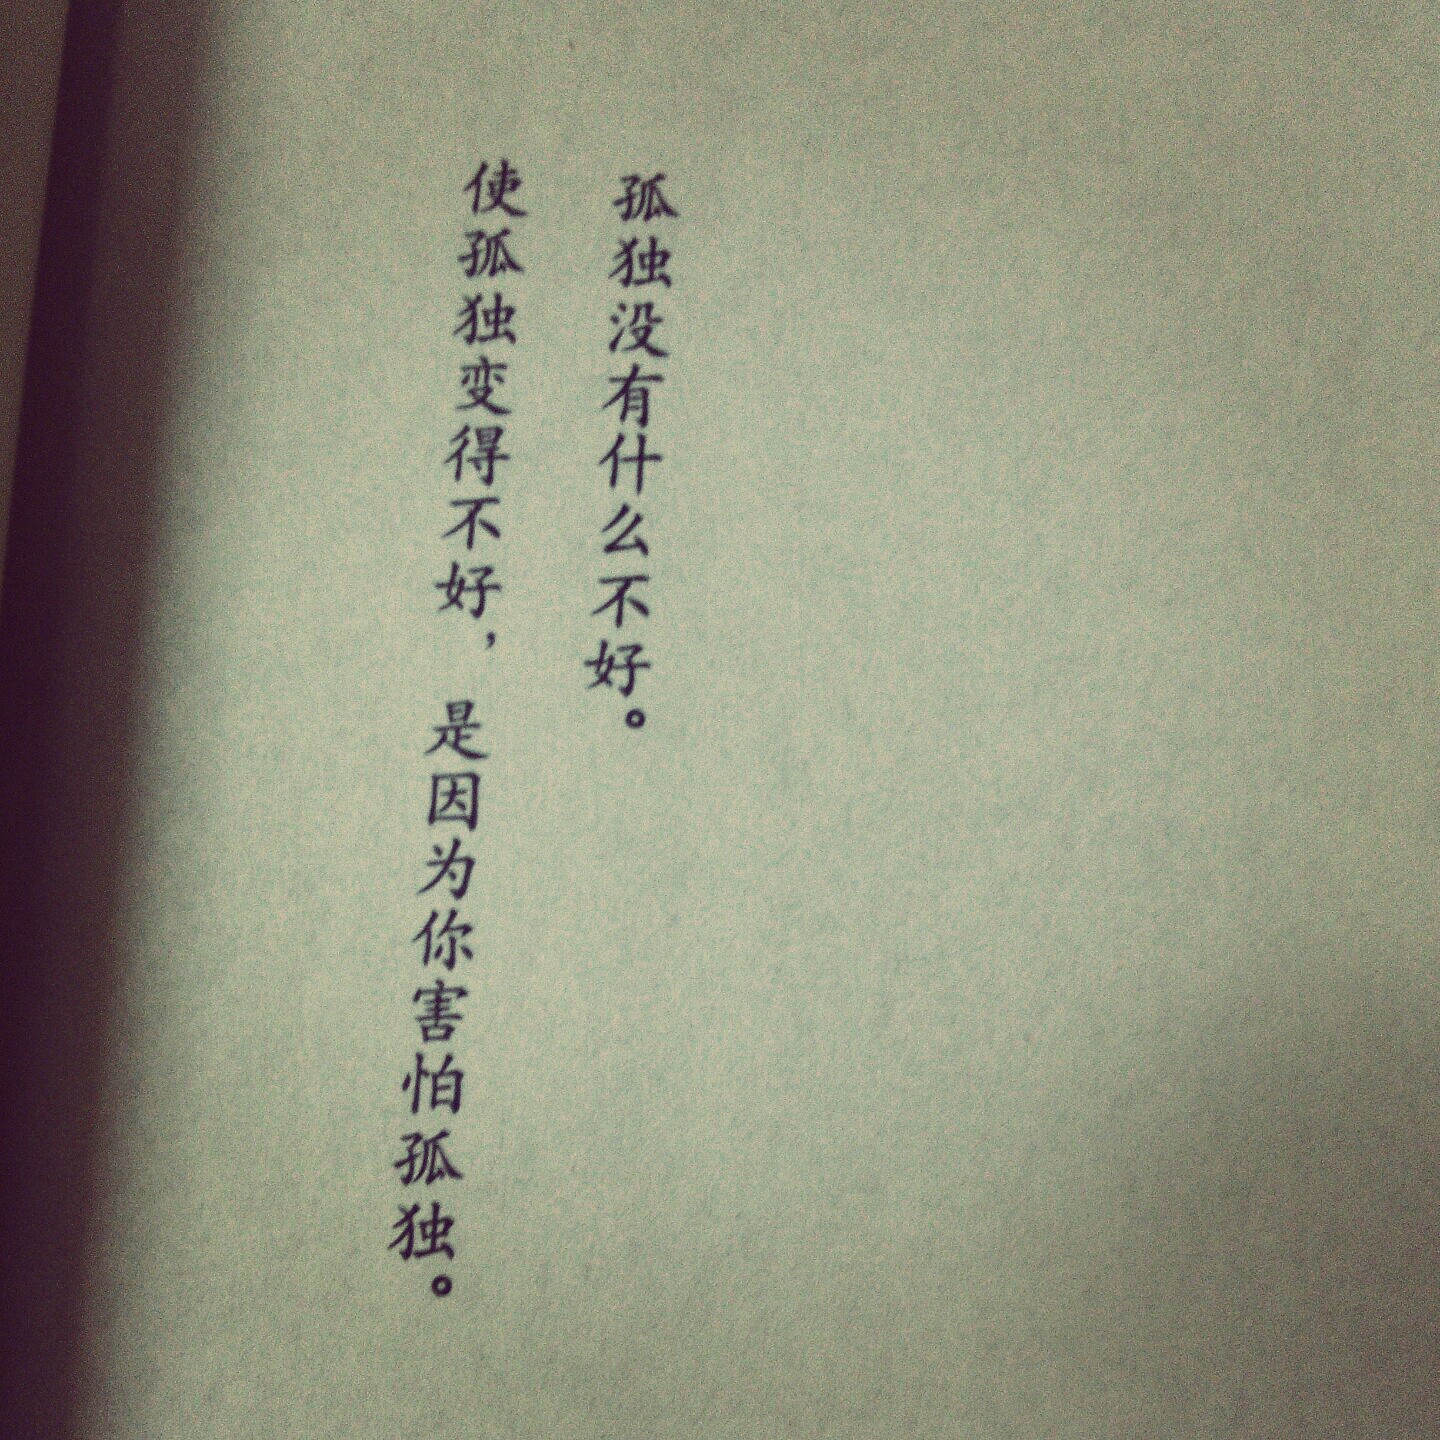 孤独没有什么不好。
使孤独变得不好，是因为你害怕孤独。